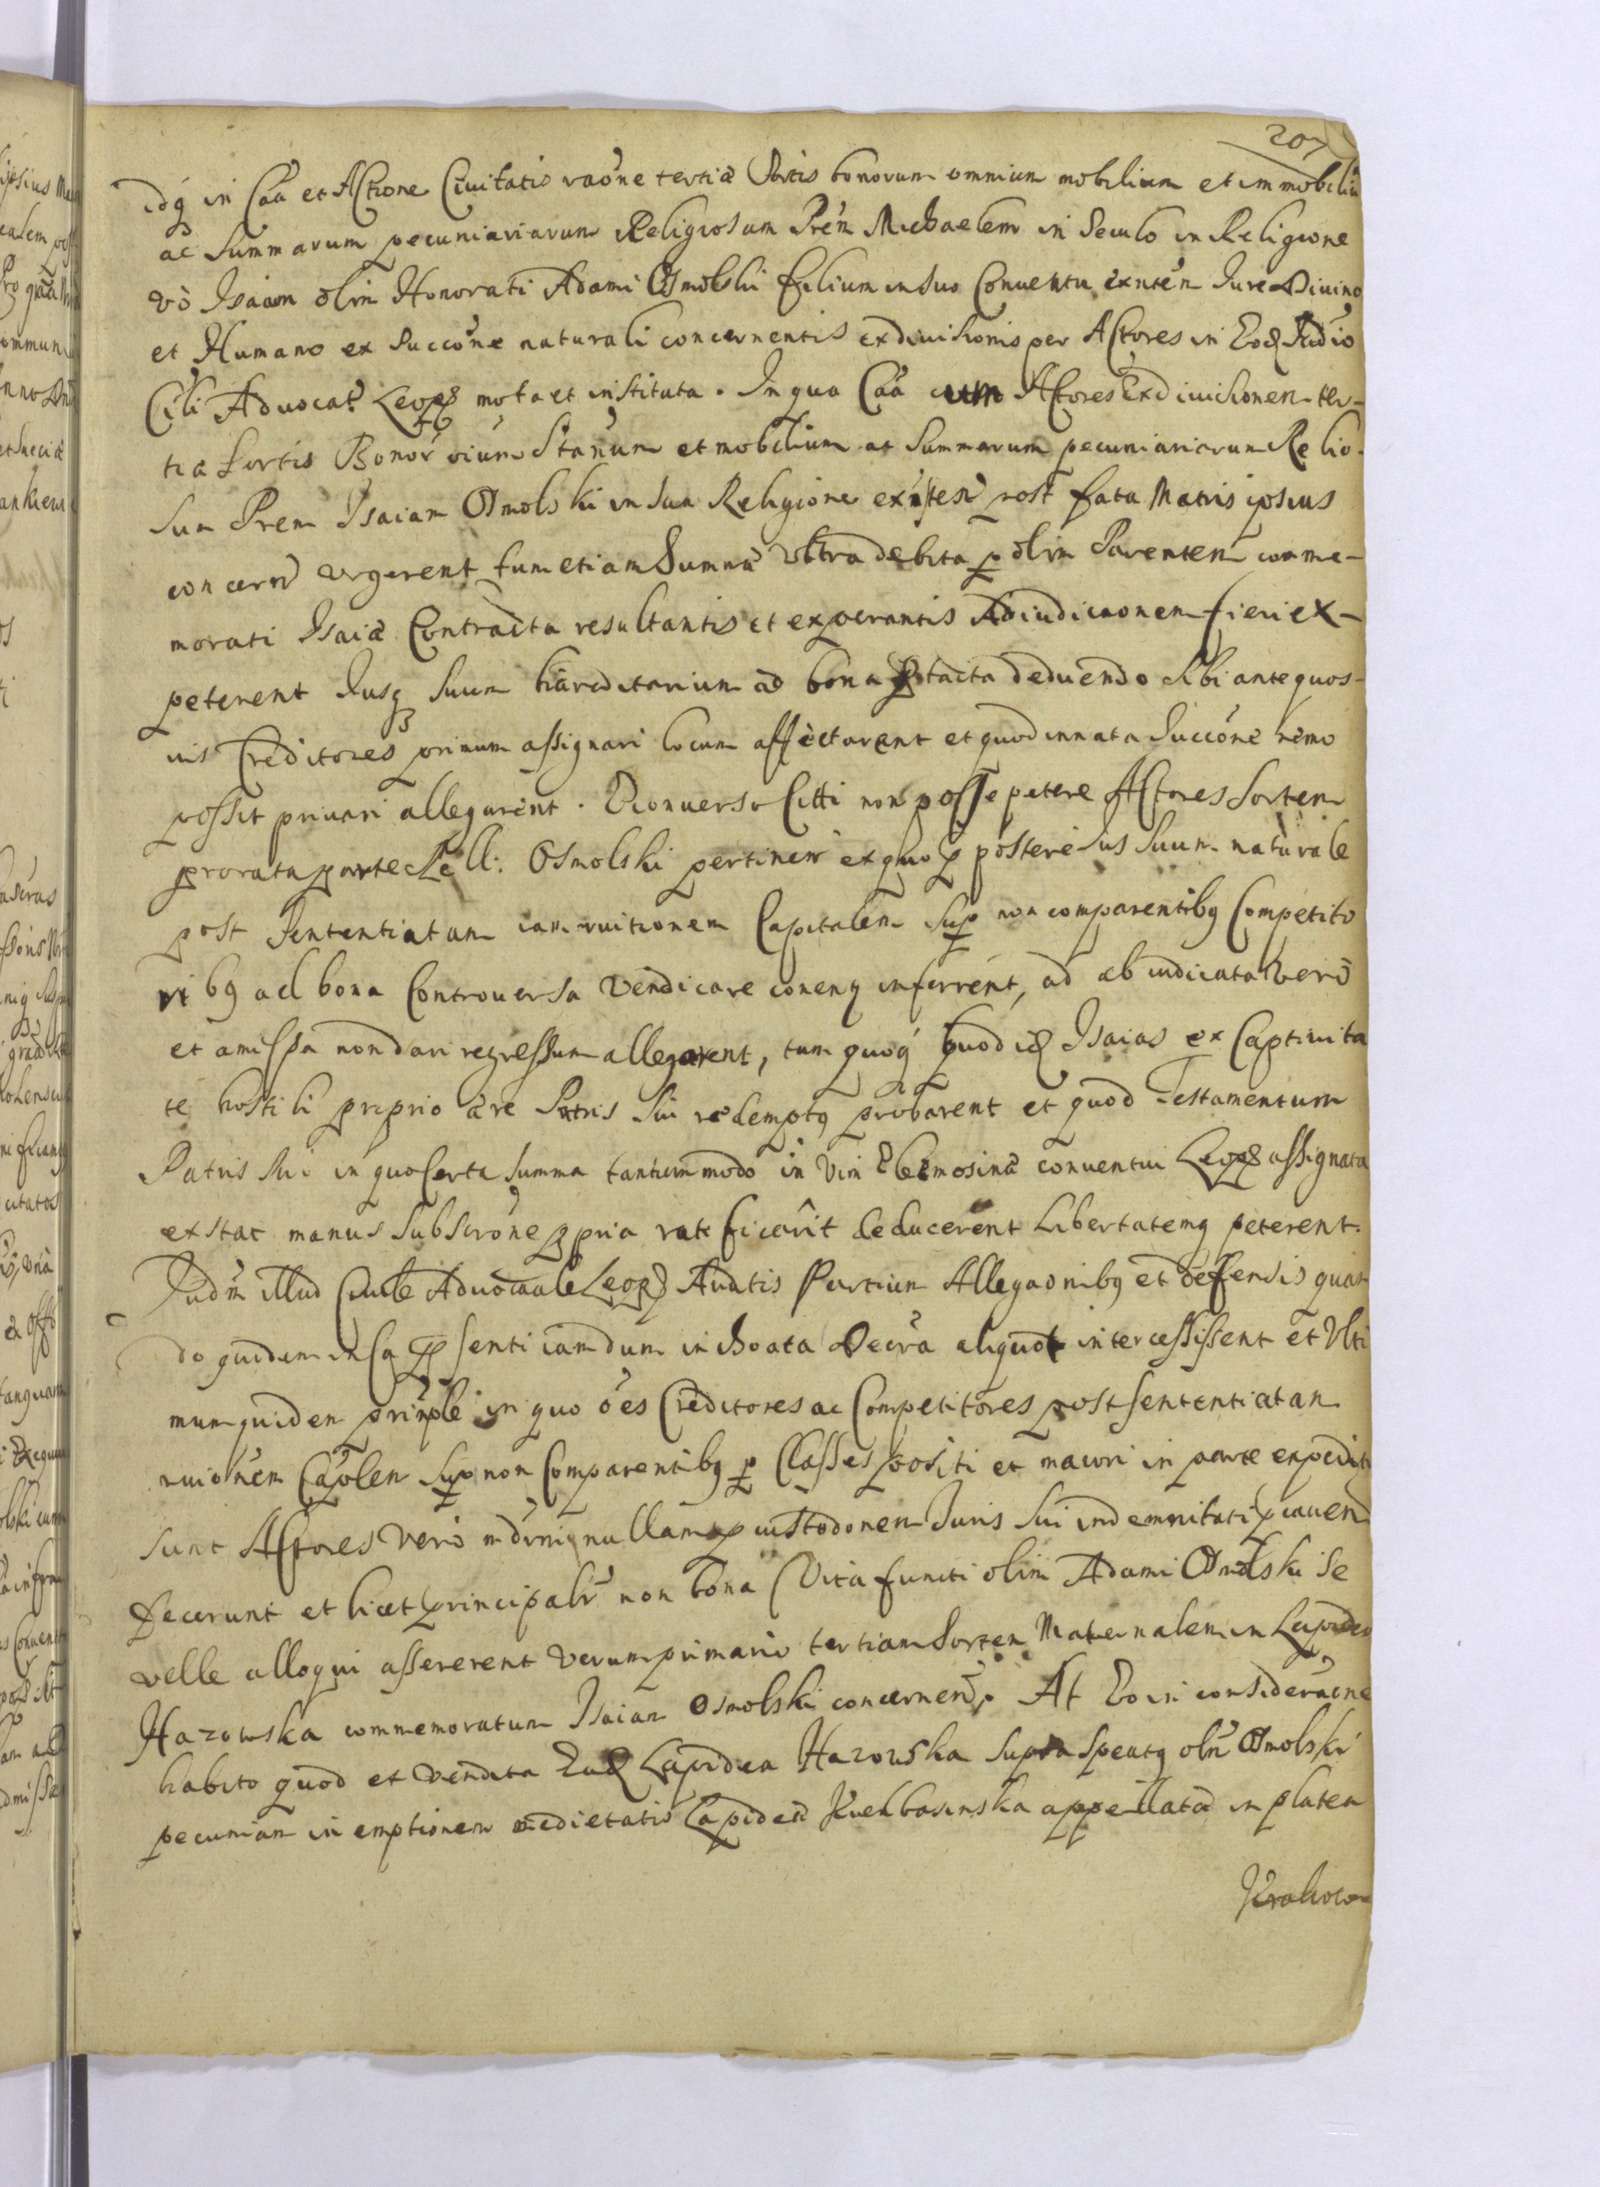 207
idq in Caa et Actione Civitatis raōne tertiæ Sortis bonorum omnium mobilium et immobiliū
ac Summarum pecuniariarum Religiosum Prēm Michaelem in Seculo in Religione
vō Isaiam olim Honorati Adami Osmolski filium in suo Conventu exnteñ Iure Divino
et Humano ex Succōne naturali concernentis exdivisionis per Actores in Eod Iudio
Cili Advocat Leopol mota et instituta. In qua Caā cum Actores Exdivisionem ter-
tiæ Sortis Bonor̄ oium Stanum et mobilium ac Summarum pecuniariarum Relio-
sum Prem Isaiam Osmolski in sua Religione existen post fata Matris ipsius
concern urgerent tum etiam Summæ Ultra debita p olim Parentem comme-
morati Isaiæ Contracta resultantis et exsperantis Adiudicaonem fieri ex-
peterent Iusq suum hæreditarium ad bona ptacta deduendo sibi ante quos-
vis Creditores primum assignari locum affectarent et quod innata Succōne nemo
possit privari allegarent. Econverso Citti non posse petere Actores Sortem
pro rata parte Rell: Osmolski pertinen ex quo p posteri Ius suum naturale
post Sententiatam iam ruitionem Capitalem Sup non comparentibq Competito
ribq ad bona Controversa Vendicare conenq inferrent, ad abiudicata Vero
et amissa non dari regressum allegarent, tum quoq quod id Isaias ex Captivita
te hostili proprio ære Patris Sui redemptq probarent et quod Testamentum
Patris Sui in quo Certa Summa tantummodo in Vim Elemosinæ conventui Leopol assignata
exstat manus Subscrōne ppria ratificarit deducerent Libertatemq peterent.
Iudm illud Civile Advocaale Leopol Auditis Partium Allegaonibq et defensis quan
do quidem in Ca p senti iamdum inchoata Decra aliquot intercessissent et Ulti
mum quidem prinple in quo oēs Creditores ac Competitores post sententiatam
ruionem Caplem Sup non Comparentibq p Classes positi et maiori in parte expediti
sunt Actores Vero nullam p custodonem Iuris Sui indemnitati p caven
fecerunt et licet principalr non bona Vita functi olim Adami Osmolski se
velle alloqui assererent Verum primario tertiam Sortem Maternalem in Lapidea
Hazowska commemoratum Isaiam Osmolski concernen. At Eo in consideraōne
habito quod et Vendita Ead Lapidea Hazowska supra Spectq olim Osmolski
pecuniam in emptionem medietatis Lapideæ Kielbasinska appellatæ in platea
Krakow